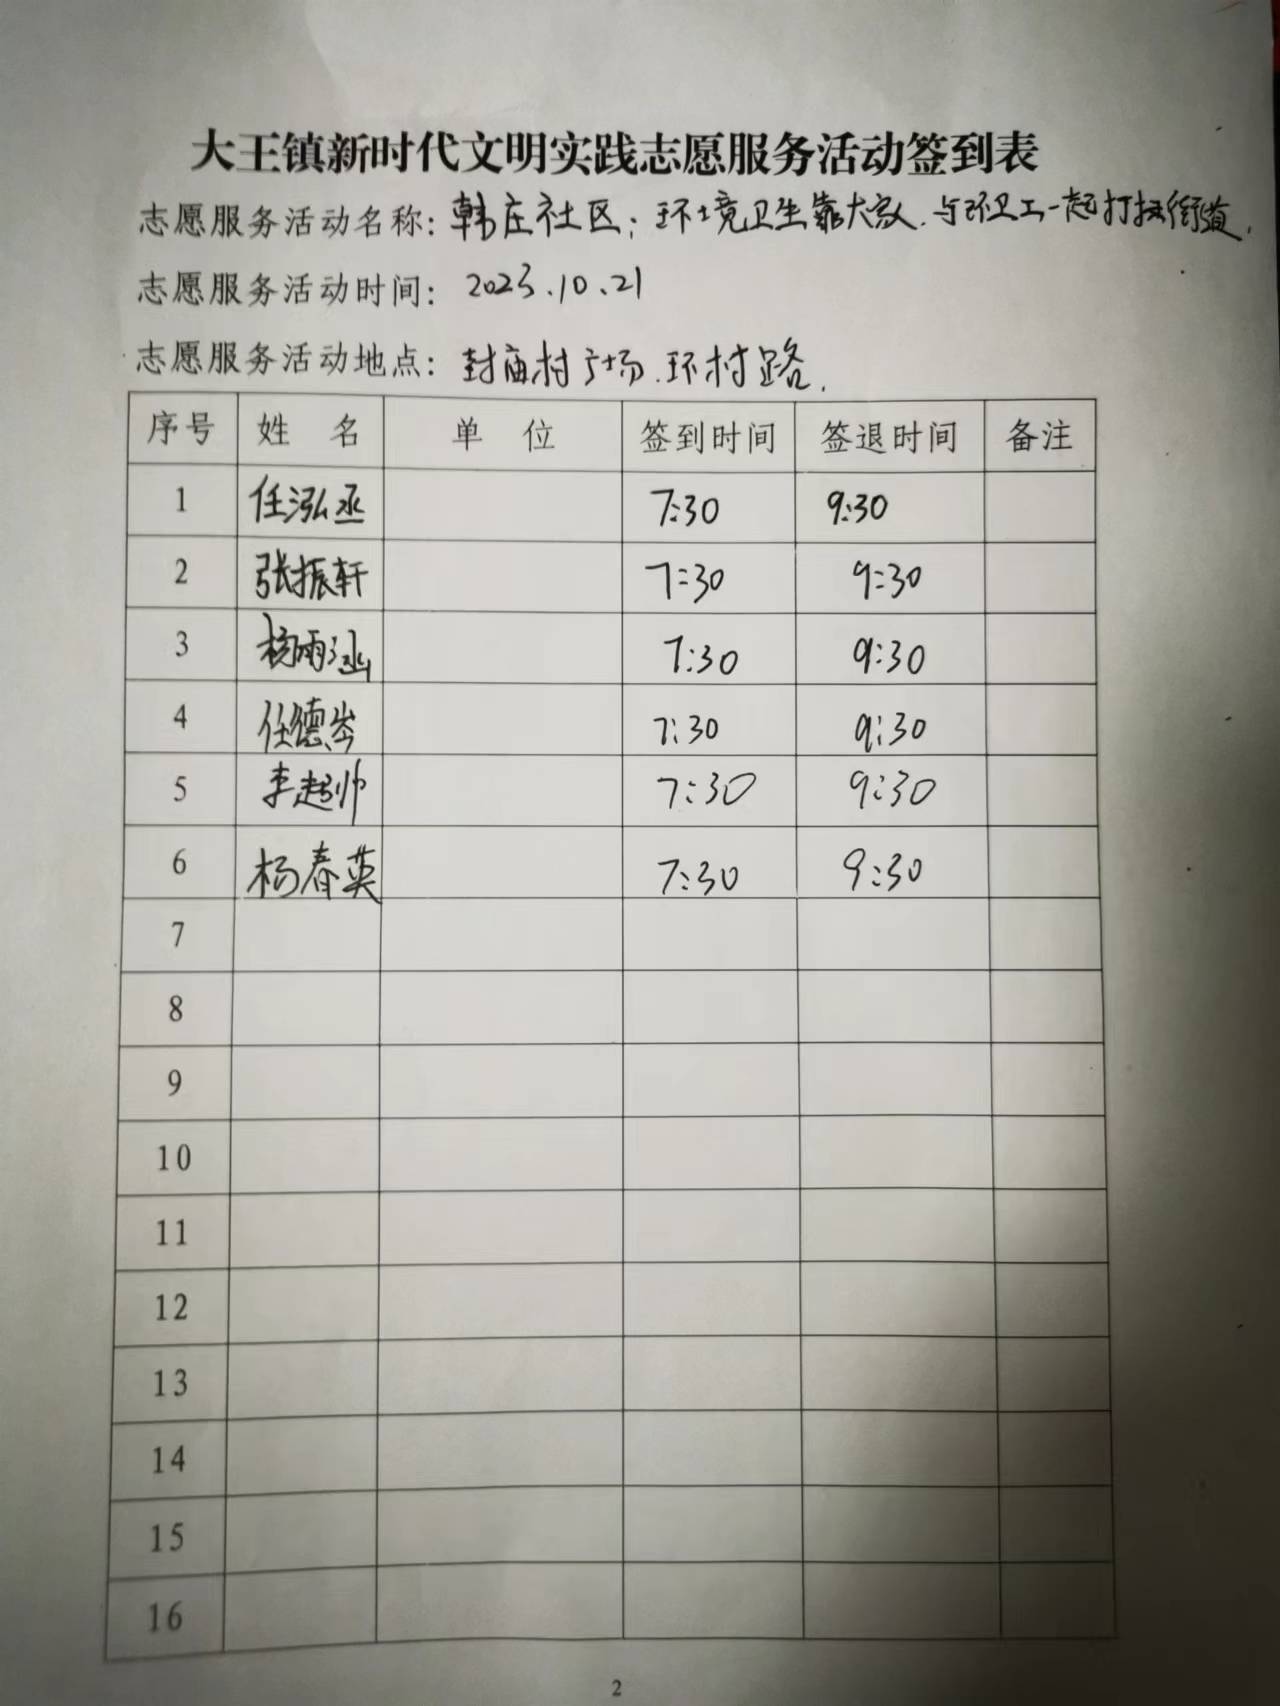 大王镇新时代文明实践志愿服务活动签到表
志愿服务活动名称：韩庄社区：环境卫生靠大家.与环卫工一起打扫街道.
志愿服务活动时间：2023.10.21
志愿服务活动地点：封庙村广场.环村路.
序号 姓 名 单 位 签到时间 签退时间 备注
1 任泓丞 7:30 9:30
2 张振轩 7:30 9:30
3 杨雨涵 7:30 9:30
4 任德岑 7:30 9:30
5 李超帅 7:30 9:30
6 杨春英 7:30 9:30
7
8
9
10
11
12
13
14
15
16
2